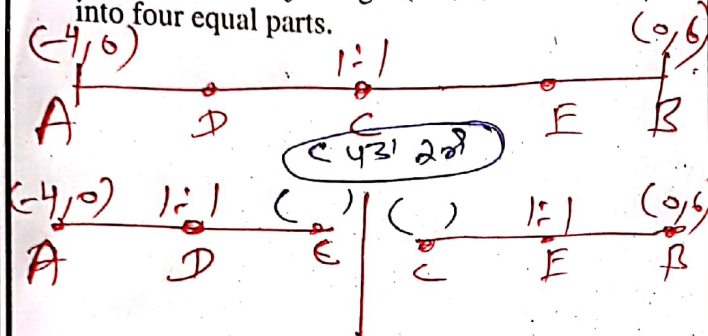 into four equal parts.
(-4,0) 1:1 (0,6)
A D C E B
(-4,0) 1:1 ( ) ( ) 1:1 (0,6)
A D C C E B